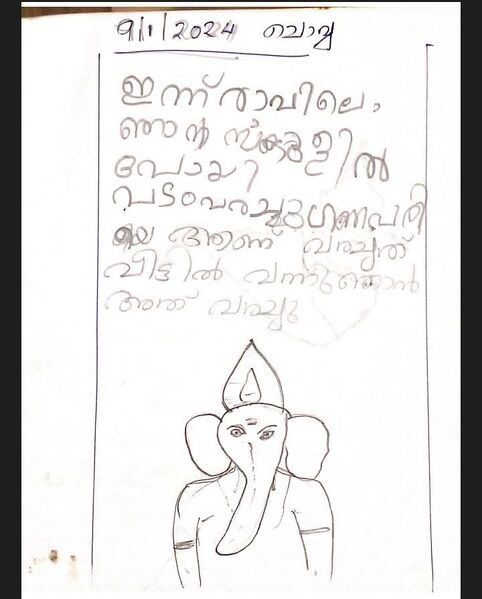 9/1/2024 ചൊവ്വ
ഇന്ന് രാവിലെ,
ഞാൻ സ്ക്കൂളിൽ
പോയി
പടംവരച്ചു ഗണപതി
യെ ആണ് വരച്ചത്
വീട്ടിൽ വന്നു ഞാൻ
അത് വരച്ചു